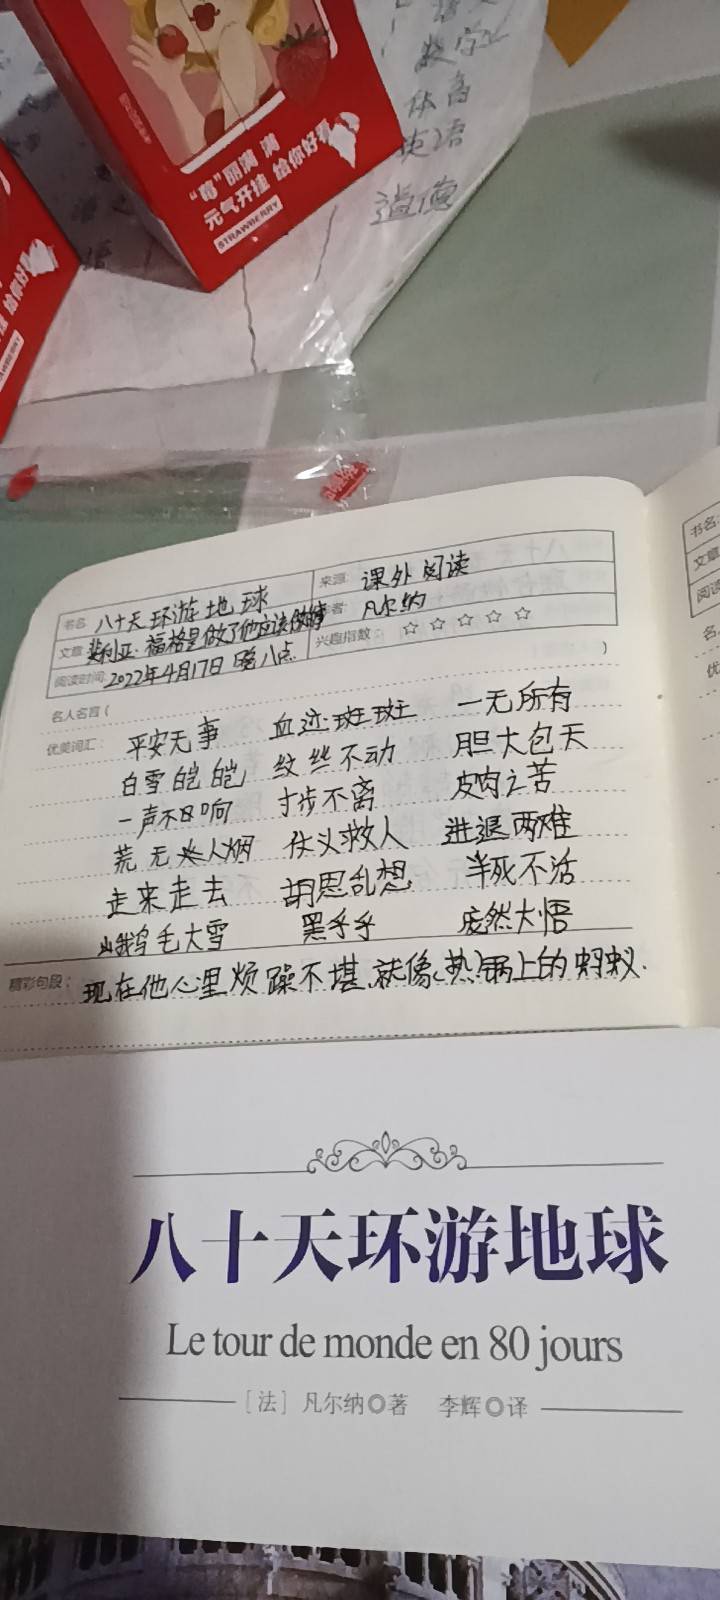 数学
体育
英语
道德
“莓”丽满满
元气开挂 给你好看
STRAWBERRY
书名 八十天环游地球 来源: 课外阅读
文章 斐利亚·福格是做了他应该做的 者: 凡尔纳
阅读时间: 2022年4月17日晚八点 兴趣指数: ☆ ☆ ☆ ☆ ☆
名人名言 ( )
优美词汇: 平安无事 血迹斑斑 一无所有
白雪皑皑 纹丝不动 胆大包天
一声不响 寸步不离 皮肉之苦
荒无人烟 仗义救人 进退两难
走来走去 胡思乱想 半死不活
鹅毛大雪 黑乎乎 庞然大悟
精彩句段: 现在他心里烦躁不堪,就像热锅上的蚂蚁.
书名:
文章
阅读
名
优
八十天环游地球
Le tour de monde en 80 jours
[法] 凡尔纳◎著 李辉◎译